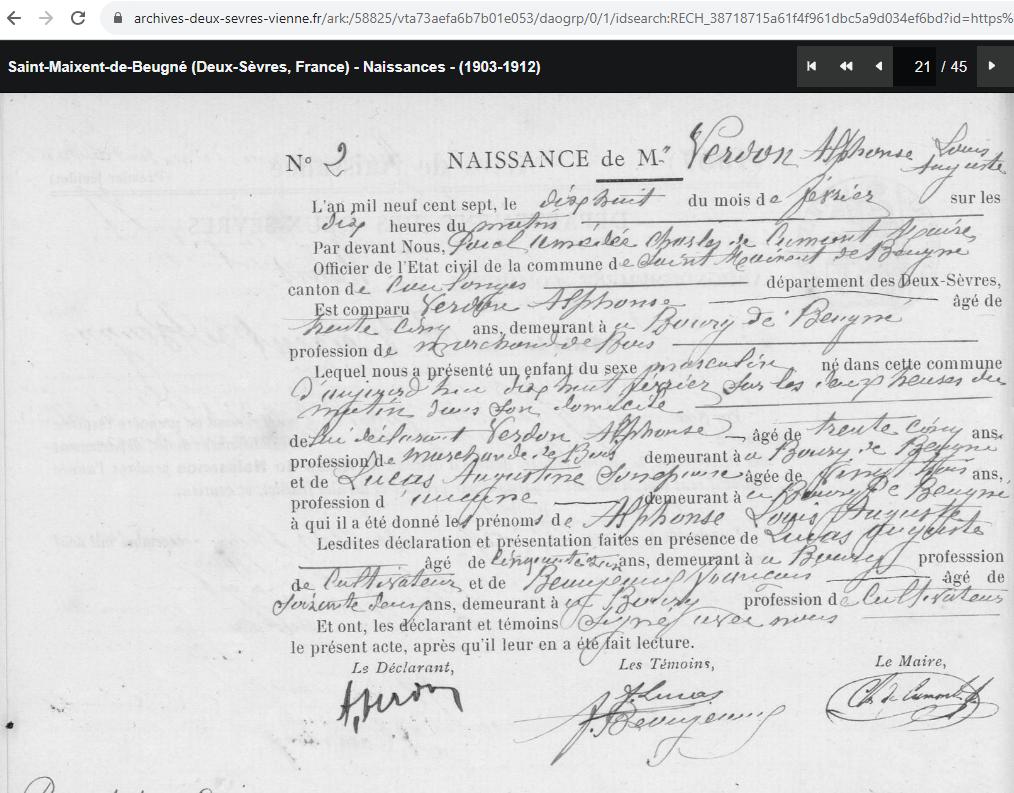 archives-deux-sevres-vienne.fr/ark:/58825/vta73aefa6b7b01e053/daogrp/0/1/idsearch:RECH_38718715a61f4f961dbc5a9d034ef6bd?id=https%
Saint-Maixent-de-Beugné (Deux-Sèvres, France) - Naissances - (1903-1912)
21 / 45
N° 2 NAISSANCE de M. Verdon Alphonse Louis Auguste
L'an mil neuf cent sept, le dix huit du mois de février sur les
dix heures du matin
Par devant Nous, Charles de Cumont Maire,
Officier de l'Etat civil de la commune de Saint Maixent de Beugné
canton de Coulonges département des Deux-Sèvres,
Est comparu Verdon Alphonse âgé de
trente cinq ans, demeurant à au Bourg de Beugné
profession de marchand de Bois
Lequel nous a présenté un enfant du sexe masculin né dans cette commune
d'aujourd'hui dix huit février sur les heures du
matin dans son domicile
de lui déclarant Verdon Alphonse âgé de trente cinq ans.
profession de marchand de Bois demeurant à au Bourg de Beugné
et de Lucas Augustine Son épouse âgée de vingt trois ans,
profession d'aucune demeurant à au Bourg de Beugné
à qui il a été donné les prénoms de Alphonse Louis Auguste
Lesdites déclaration et présentation faites en présence de Lucas Auguste
âgé de ans, demeurant à au Bourg professsion
de Cultivateur et de Beaujeault François âgé de
soixante deux ans, demeurant à au Bourg profession de Cultivateur
Et ont, les déclarant et témoins Signé avec nous
le présent acte, après qu'il leur en a été fait lecture.
Le Déclarant, Les Témoins, Le Maire,
A. Verdon A. Lucas Ch. de Cumont